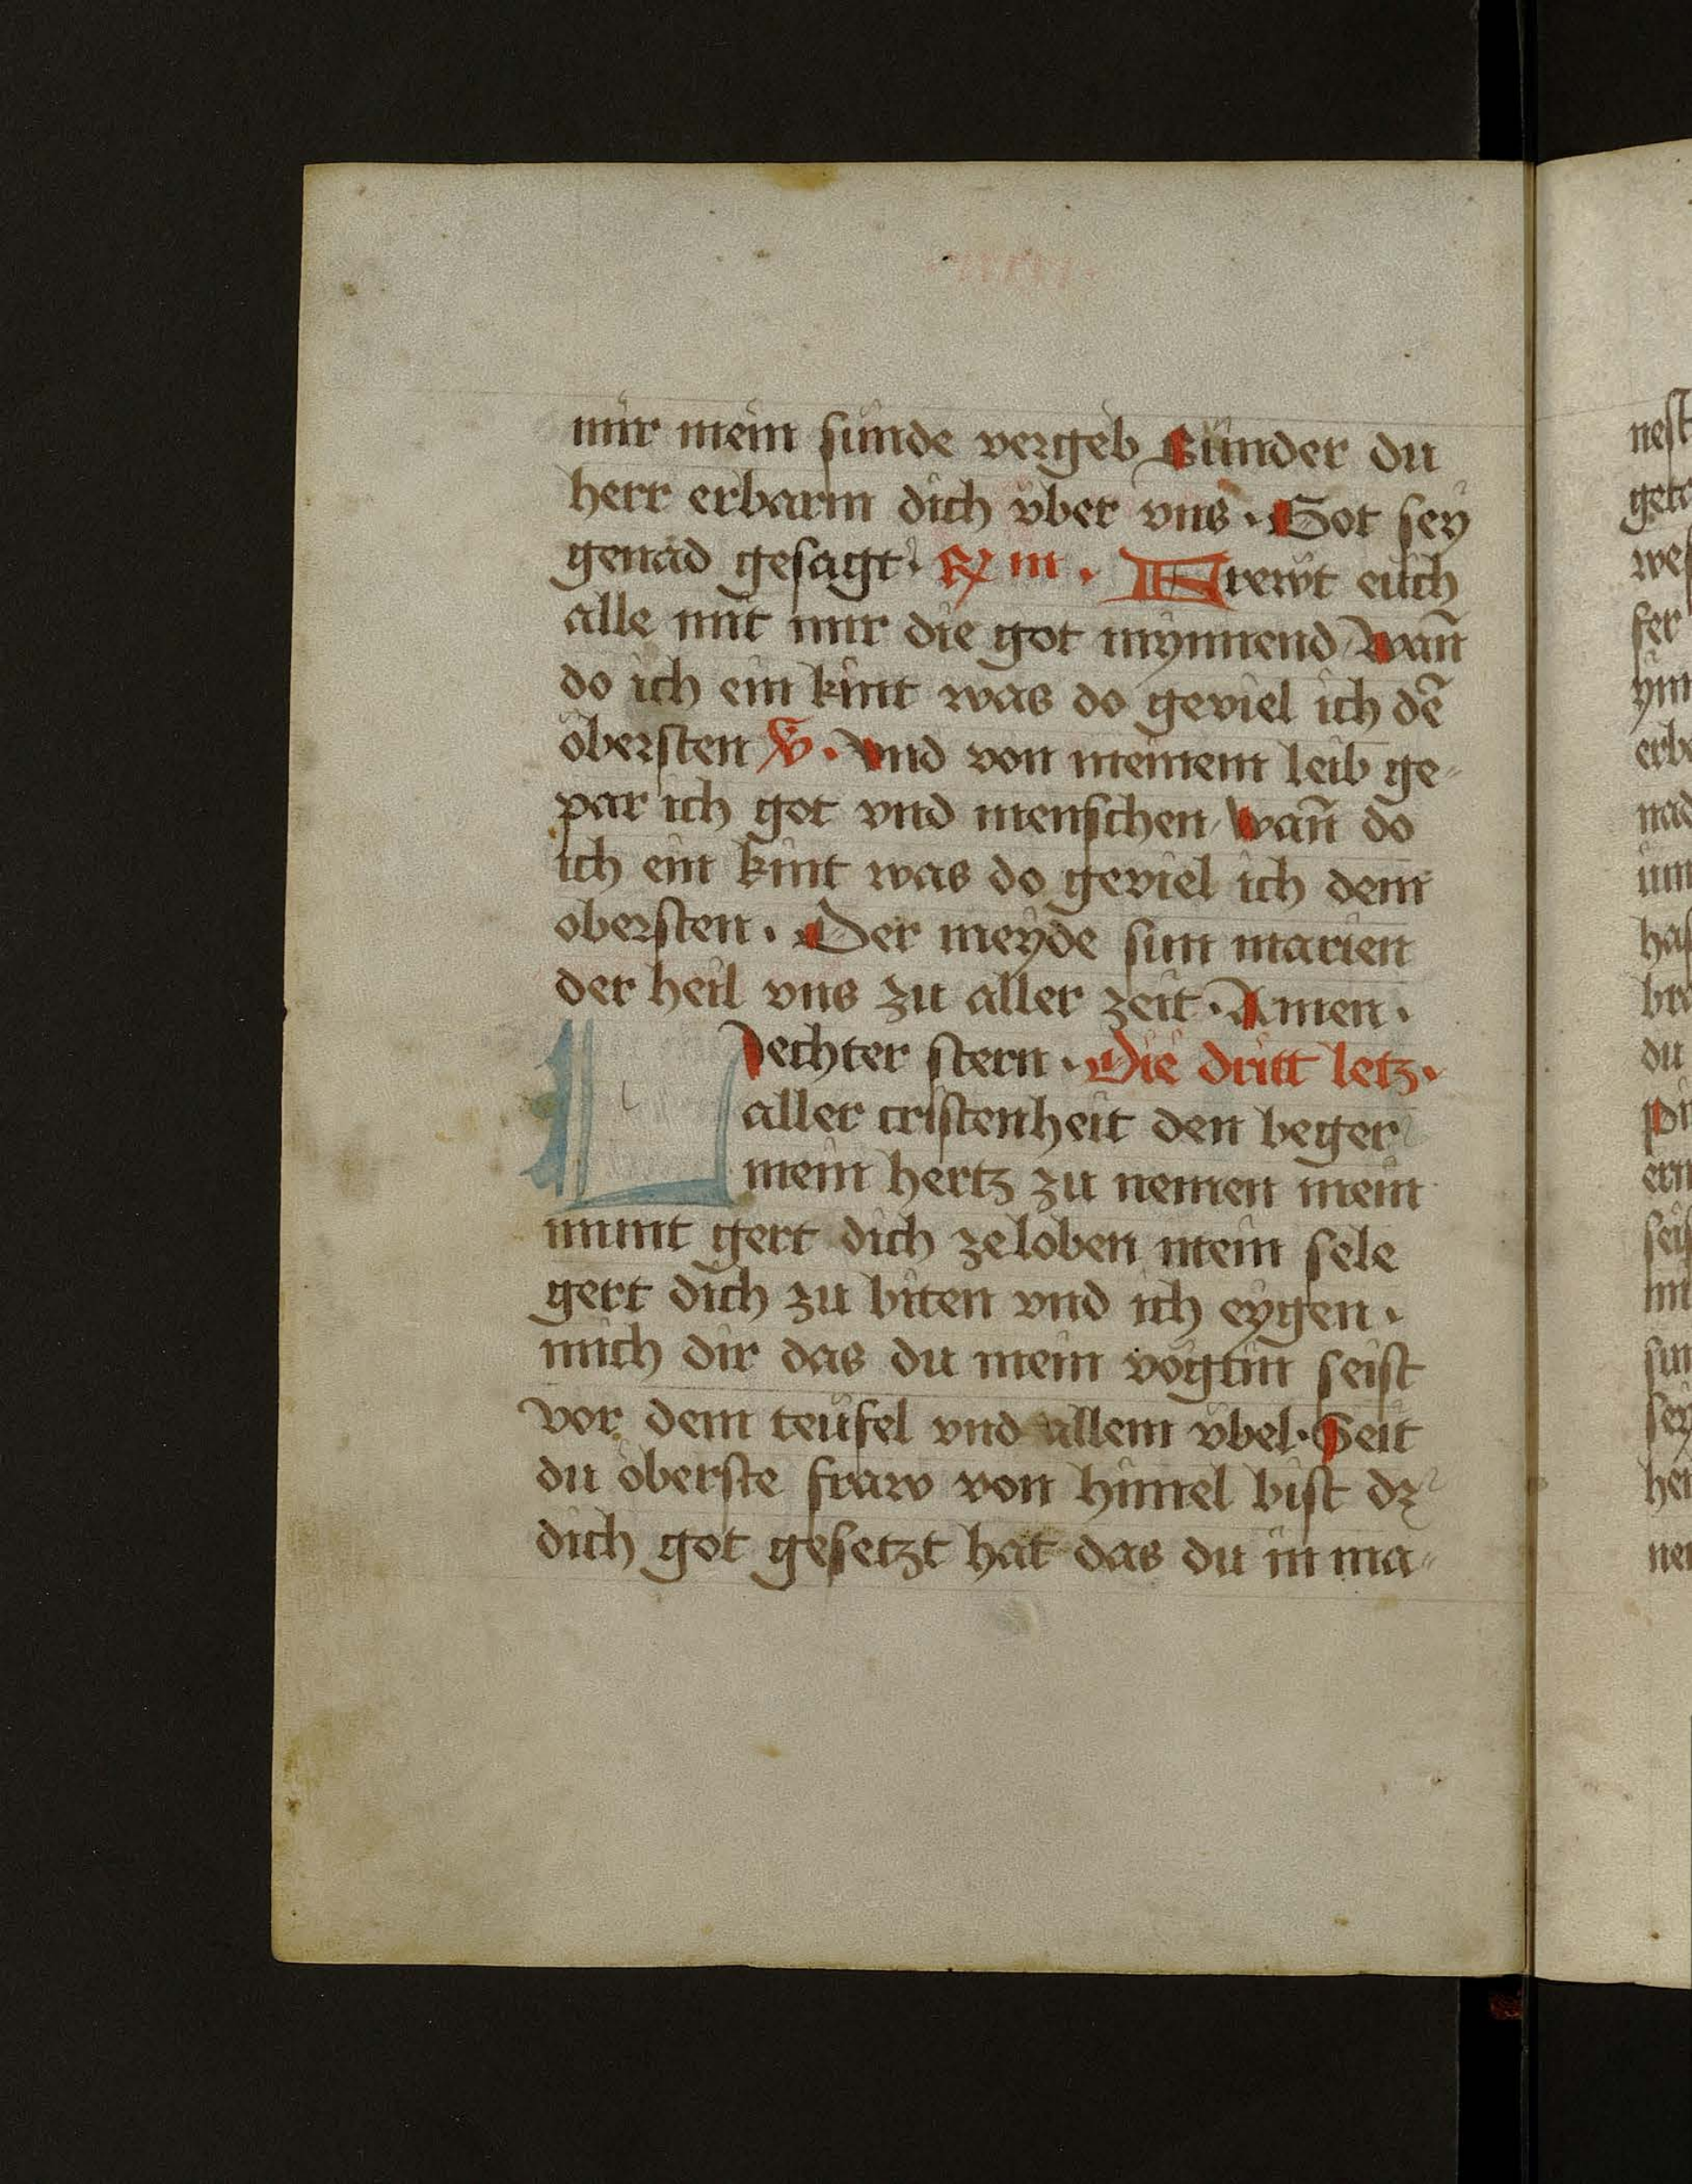 mir mein sünde vergeb Sünder du
herr erbarm dich vber vns · Got sey
genad gesagt · ℟ m · Frewt euch
alle mit mir die got mynnend / wan̄
do ich ein kint was do geviel ich dē
öbersten ℣ · vnd von meinem leib ge⸗
par ich got vnd menschen / wan̄ do
ich ein kint was do geviel ich dem
obersten · Der meyde sun marien
der heil vns zu aller zeit · Amen ·
Liechter stern · Die dritt letz ·
aller cristenheit den beger
mein hertz zu nemen mein
munt gert dich zeloben mein sele
gert dich zu biten vnd ich eygen ·
mich dir das du mein vögtin seist
vor dem teüfel vnd allem vbel · Seit
du öberste fraw von himel bist dz
dich got gesetzt hat das du in ma⸗